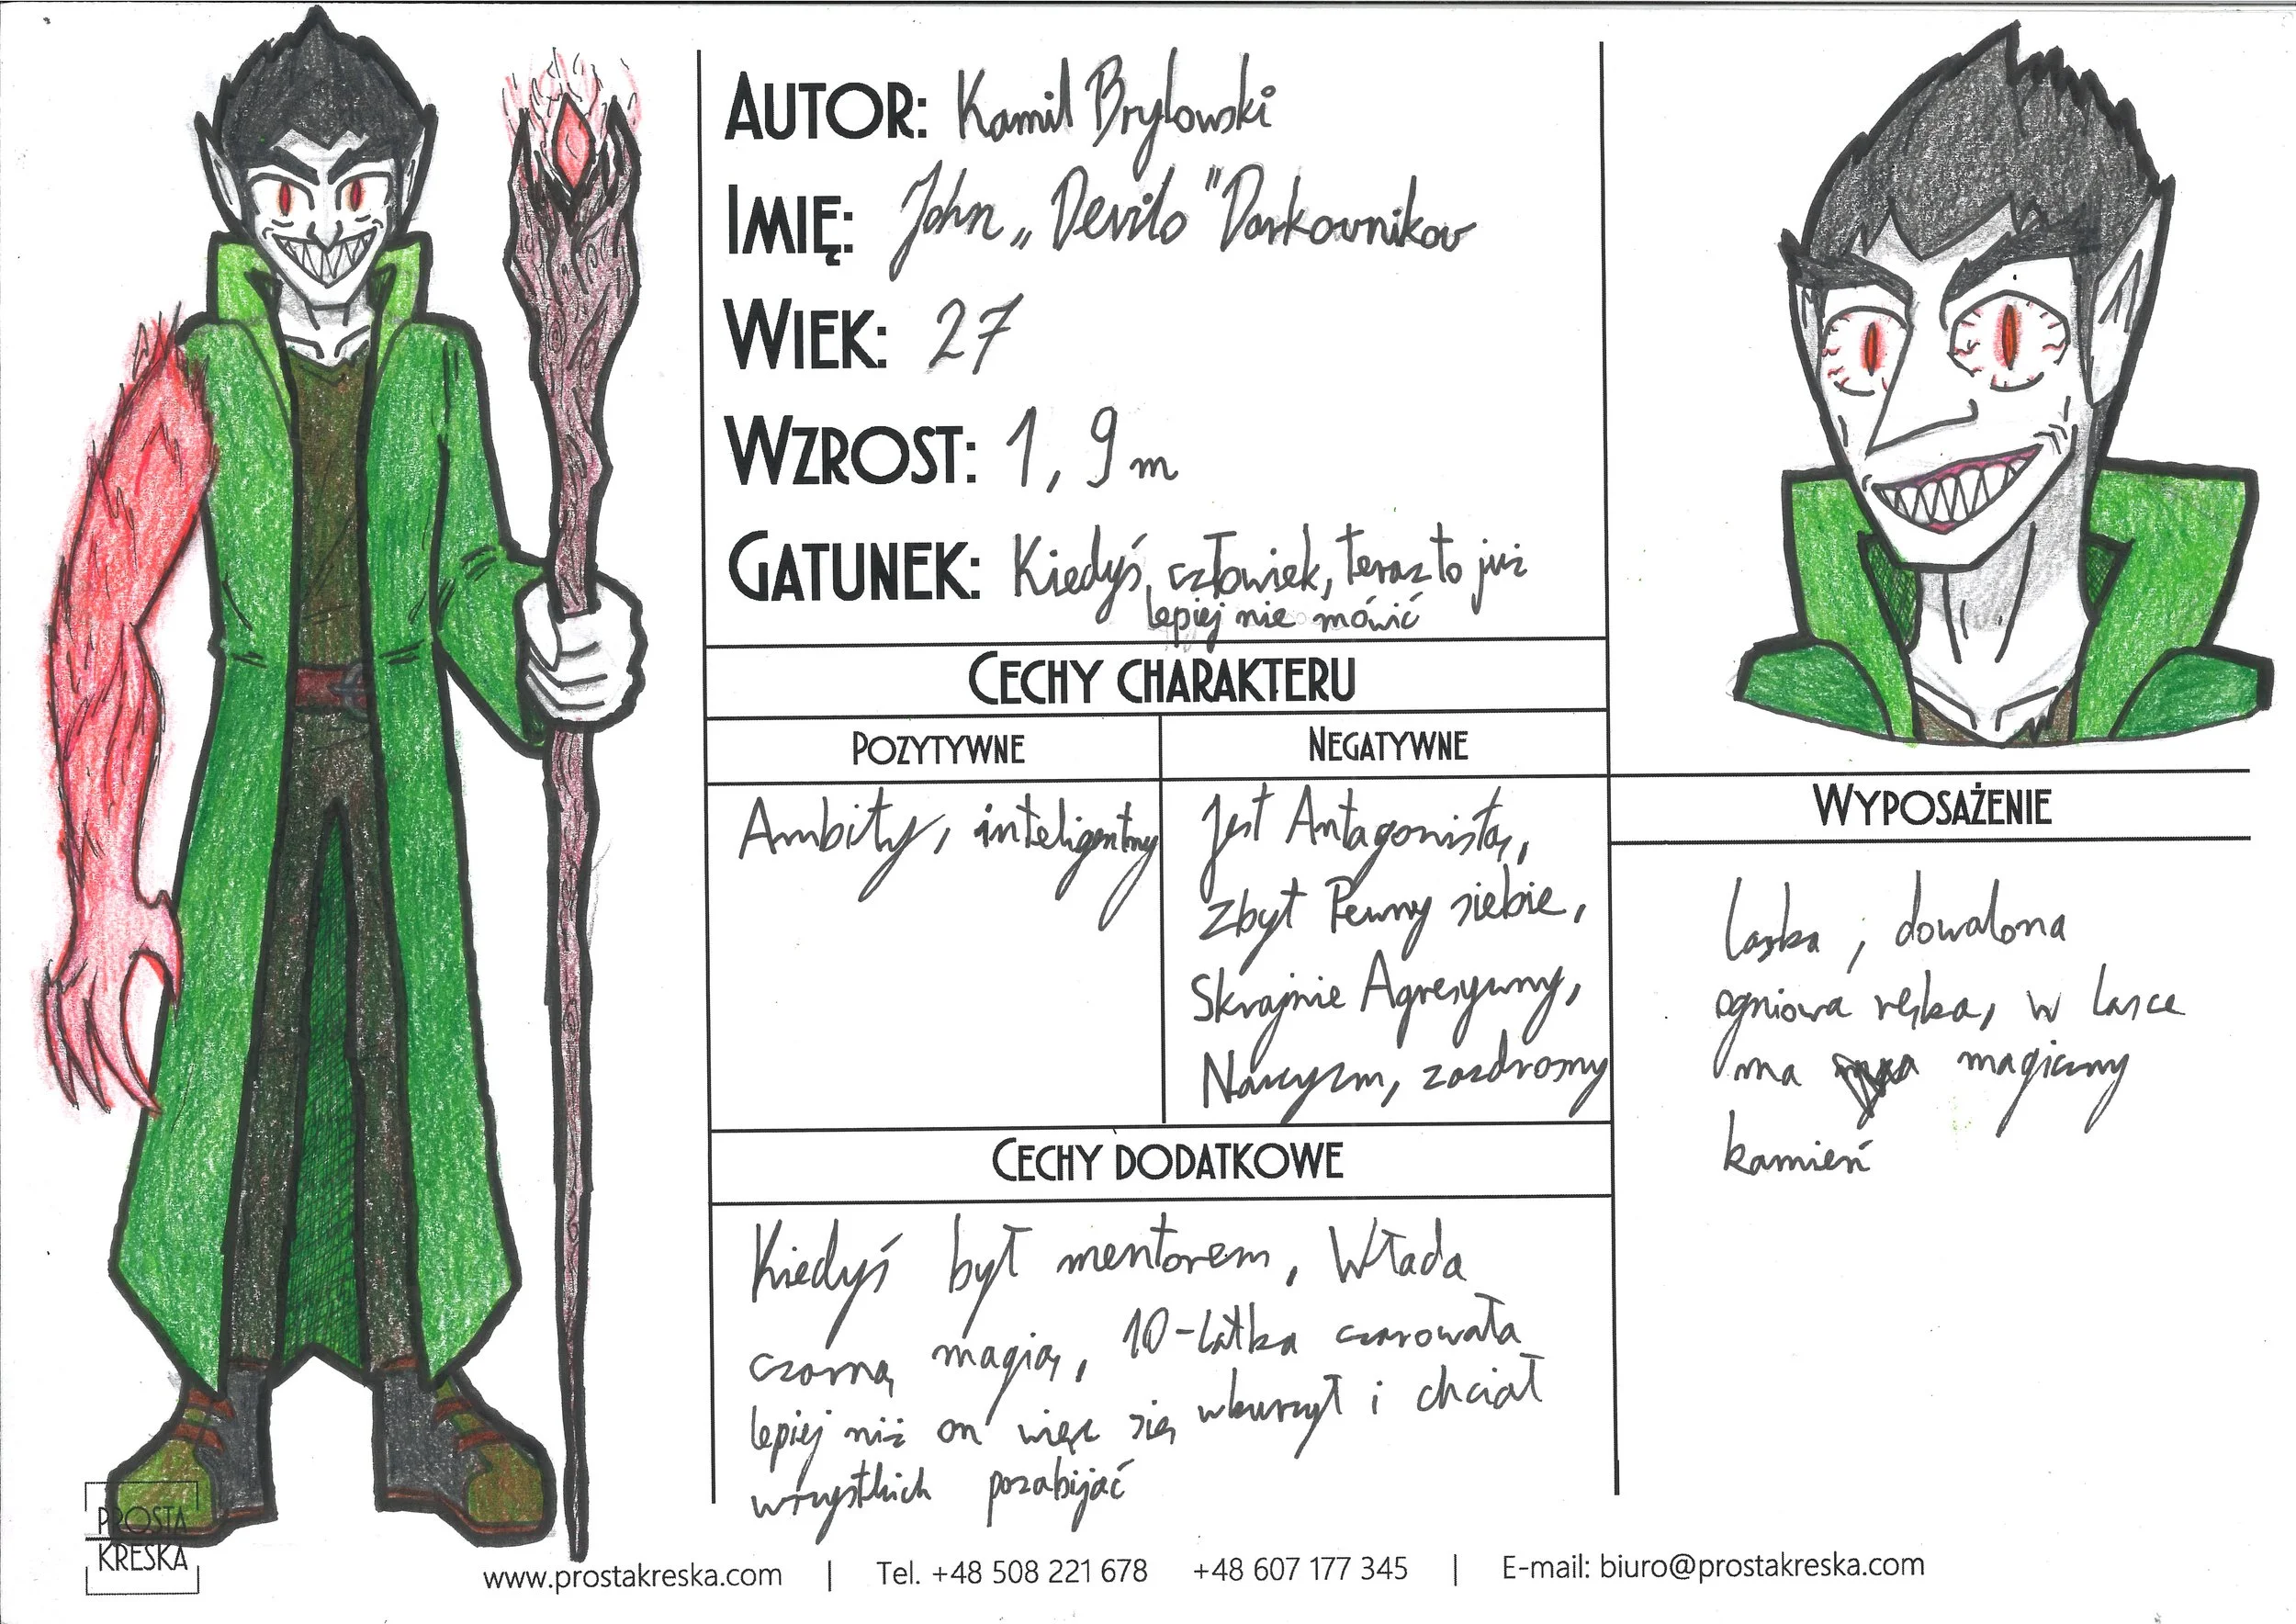 AUTOR: Kamil Brylowski
IMIĘ: John „Devilo" Darkovnikov
WIEK: 27
WZROST: 1,9 m
GATUNEK: Kiedyś człowiek, teraz to już
lepiej nie mówić
CECHY CHARAKTERU
POZYTYWNE
NEGATYWNE
Ambity, inteligentny
Jest Antagonistą,
Zbyt Pewny siebie,
Skrajnie Agresywny,
Narcyzm, zazdrosny
WYPOSAŻENIE
laska, dowalona
ogniowa ręka, w lasce
ma magiczny
kamień
CECHY DODATKOWE
Kiedyś był mentorem, Włada
czarną magią, 10-latka czarowała
lepiej niż on więc się wkurzył i chciał
wszystkich pozabijać
PROSTA
KRESKA
www.prostakreska.com | Tel. +48 508 221 678 +48 607 177 345 | E-mail: biuro@prostakreska.com